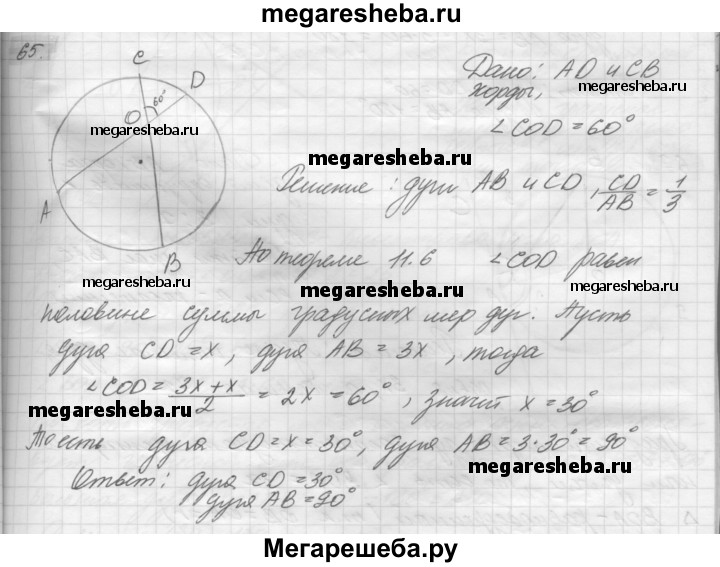 megaresheba.ru
65.
C
D
Дано: AD и CB
хорды,
O 60°
megaresheba.ru
∠COD = 60°
megaresheba.ru
Решение: дуги AB и CD, CD/AB = 1/3
A
B
По теореме 11.6 ∠COD равен
megaresheba.ru
megaresheba.ru
половине суммы градусных мер дуг. Пусть
дуга CD = x, дуга AB = 3x, тогда
∠COD = 3x + x / 2 = 2x = 60°, значит x = 30°
megaresheba.ru
То есть дуга CD = x = 30°, дуга AB = 3·30° = 90°
megaresheba.ru
Ответ: дуга CD = 30°
дуга AB = 90°
Мегарешеба.ру